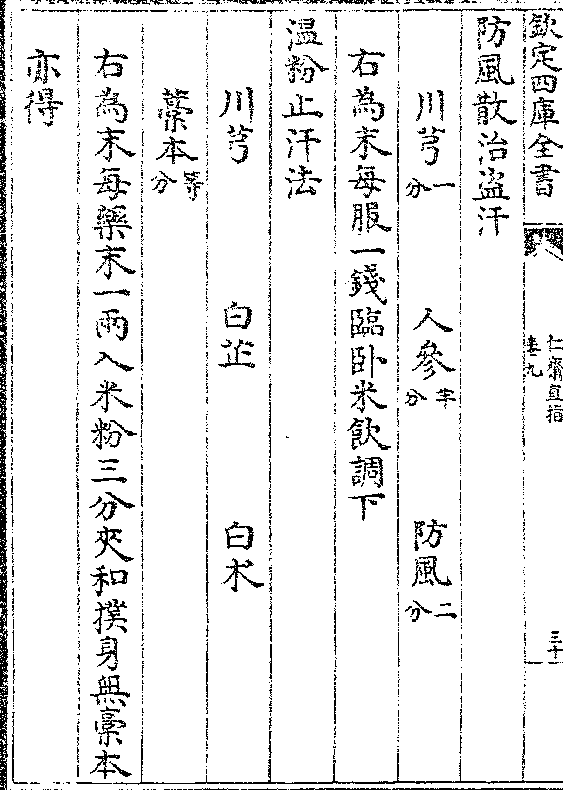 欽定四庫全書
仁齋直指
卷九
三十
防風散治盗汗
川芎一分 人參半分 防風二分
右為末每服一錢臨卧米飲調下
温粉止汗法
川芎 白芷 白朮
藁本等分
右為末每藥末一兩入米粉三分夾和撲身無藁本
亦得